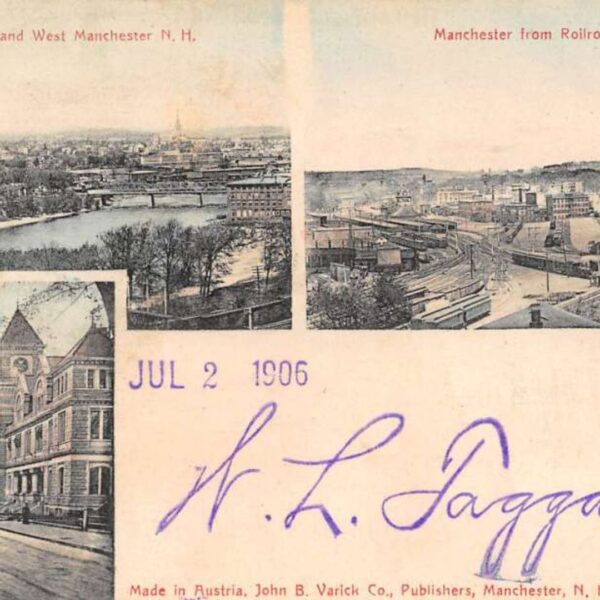 and West Manchester N. H.
Manchester from Roilro
JUL 2 1906
H. L. Tagga
Made in Austria. John B. Varick Co., Publishers, Manchester, N. H